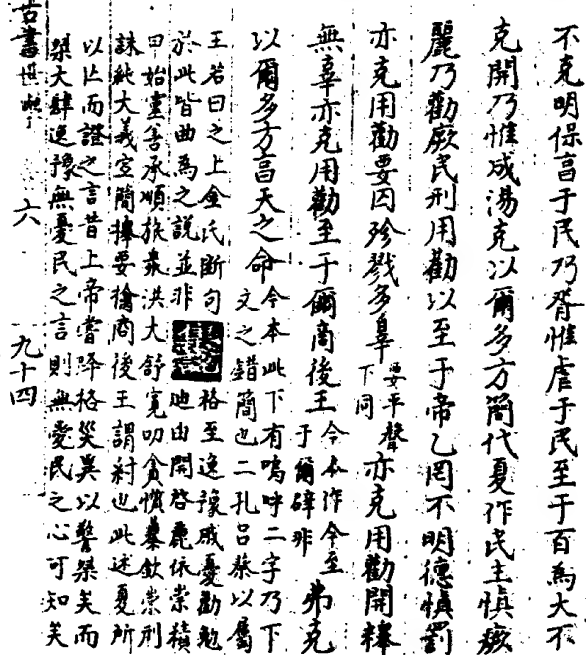 不克明保享于民乃胥惟虐于民至于百為大不
克開乃惟成湯克以爾多方簡代夏作民主慎厥
麗乃勸厥民刑用勸以至于帝乙罔不明德慎罰
亦克用勸要囚殄戮多辜要平聲下同亦克用勸開釋
無辜亦克用勸至于爾商後王今本作今至于爾辟非弗克
以爾多方享天之命今本此下有嗚呼二字乃下文之錯簡也二孔呂蔡以屬
王若曰之上金氏斷句
於此皆曲為之說並非格至逸豫戚憂勸勉
迪由開啓麗依崇積
曰始靈善承順旅眾洪大舒寬叨貪懫暴欽崇刑
誅純大義宜簡擇要擒商後王謂紂也此述夏所
以亡而證之言昔上帝嘗降格災異以警桀矣而
桀大肆逸豫無憂民之言則無愛民之心可知矣
古書世學
六
九十四